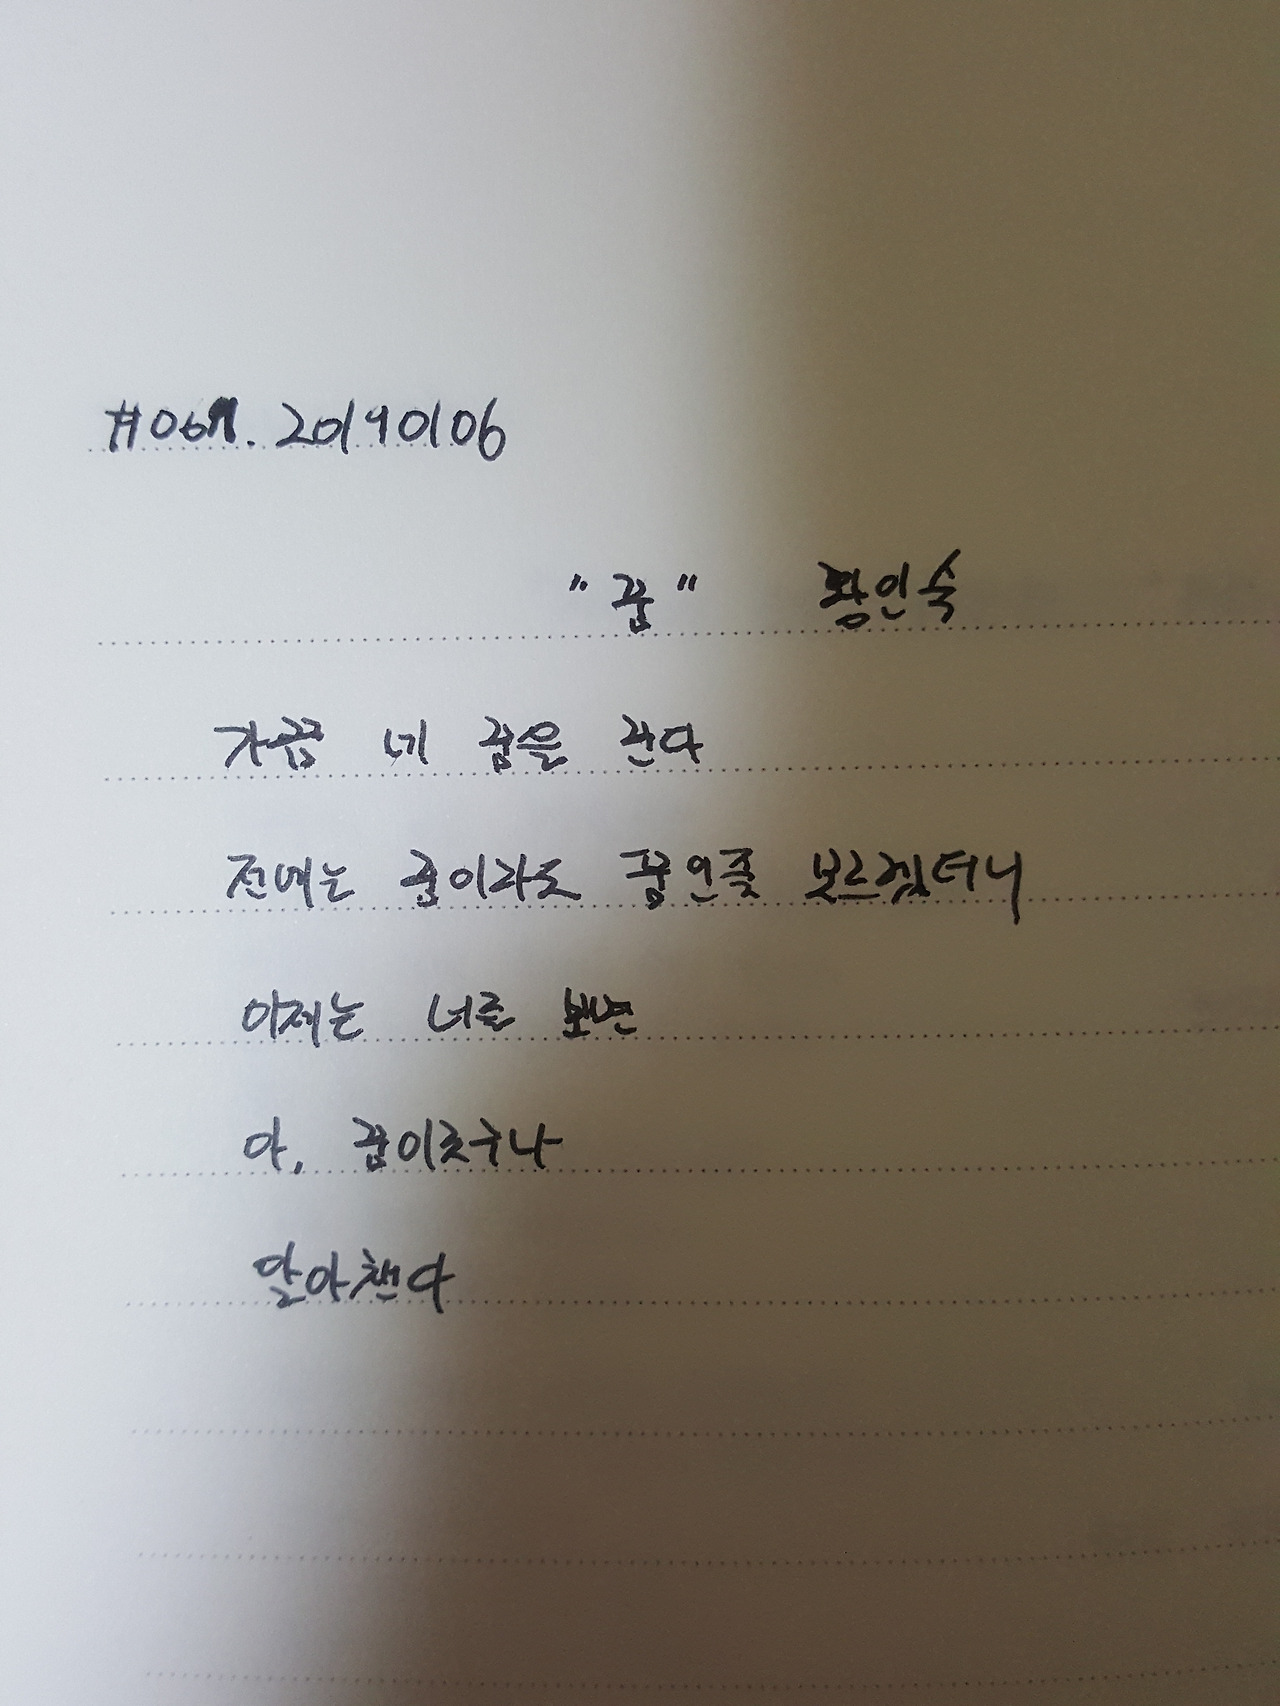 #067. 20190106
"꿈" 황인숙
가끔 네 꿈을 꾼다
전에는 꿈이라도 꿈인줄 모르겠더니
이제는 너를 보면
아, 꿈이로구나
알아챈다